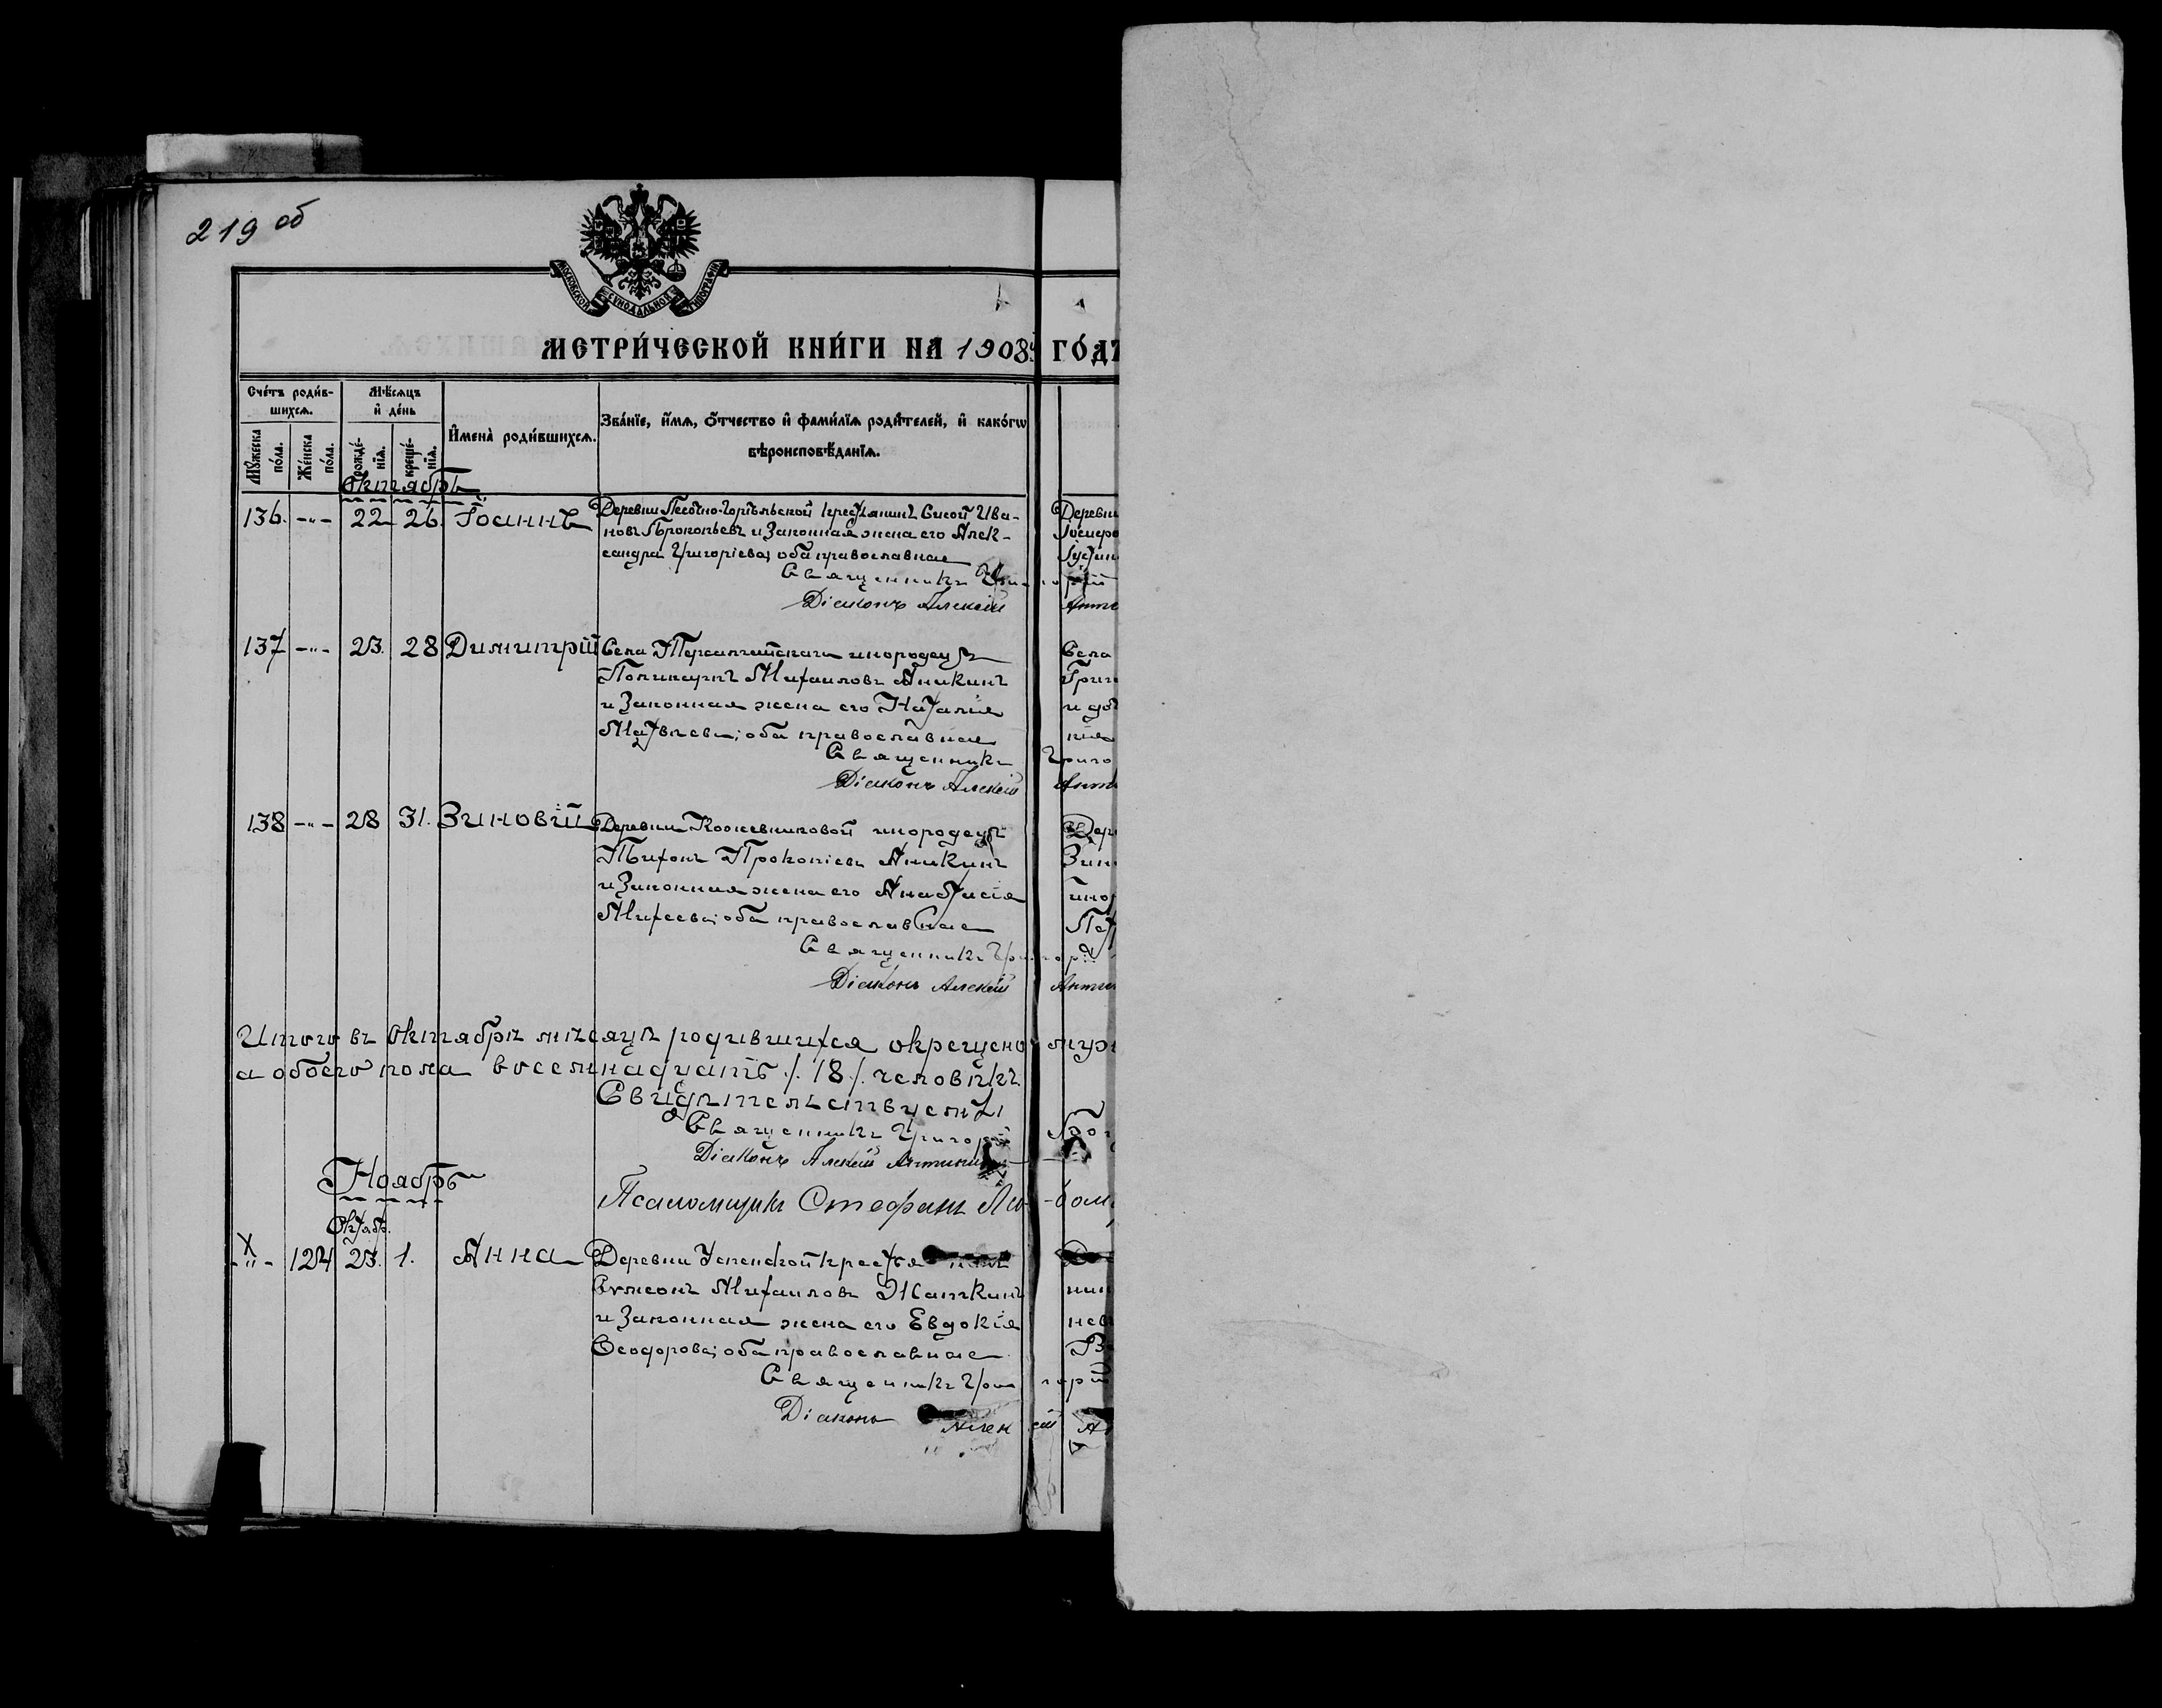 219 об
МОСКОВСКОЙ СѴНОДАЛЬНОЙ ТИПОГРАФІИ
МЕТРИ́ЧЕСКОЙ КНИ́ГИ НА 1908й ГО́ДЪ
Сче́тъ роди́в-
шихся.
Мѣ́сяцъ
и҆ де́нь
И҆мена̀ роди́вшихся.
Зва́нїе, и҆́мѧ, ѻ҆́тчество и҆ фами́лїѧ роди́телей, и҆ како́гѡ
вѣроисповѣ́данїѧ.
Мꙋ́жеска
по́ла.
Же́нска
по́ла.
рожде́-
нїѧ.
креще́-
нїѧ.
Октябрь
136. -"- 22 26. Іоаннъ Деревни Песочно- крестьянинъ Сисой Ива-
новъ Прокопьевъ и Законная жена его Алек-
сандра Григоріева; оба православные
Священникъ Григорій
Діаконъ Алексій
137 -"- 23. 28 Димитрій Села инородецъ
Поликарпъ Михаиловъ Аникинъ
и Законная жена его Наталія
Матвѣева; оба православные
Священникъ Григо
Діаконъ Алексій
138 -"- 28 31. Зиновій Деревни Кожевниковой инородецъ
Трифонъ Прокопіевъ Аникинъ
и Законная жена его Анастасія
Михеева; оба православные
Священникъ Григорій
Діаконъ Алексій
Итого въ Октябрѣ мѣсяцѣ родившихся окрещено муж
а обоего пола восемнадцать /. 18 /. человѣкъ.
Свидѣтельствуемъ
Священникъ Григорій
Діаконъ Алексій
Ноябрь
Псаломщикъ Стефанъ
Октяб.
X
-"- 124 23. 1. Анна Деревни Успенской крестья
Сѵмеонъ Михаиловъ Жаткинъ
и Законная жена его Евдокія
Ѳеодорова; оба православные
Священникъ Григорій
Діаконъ Алексій